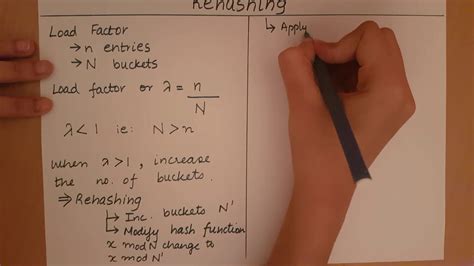 Rehashing
Load Factor
→ n entries
→ N buckets
Load factor or λ = n
N
λ < 1 ie: N > n
when λ > 1, increase
the no. of buckets.
⇒ Rehashing
↳ Inc. buckets N'
↳ Modify hash function
x mod N change to
x mod N'
↳ Apply